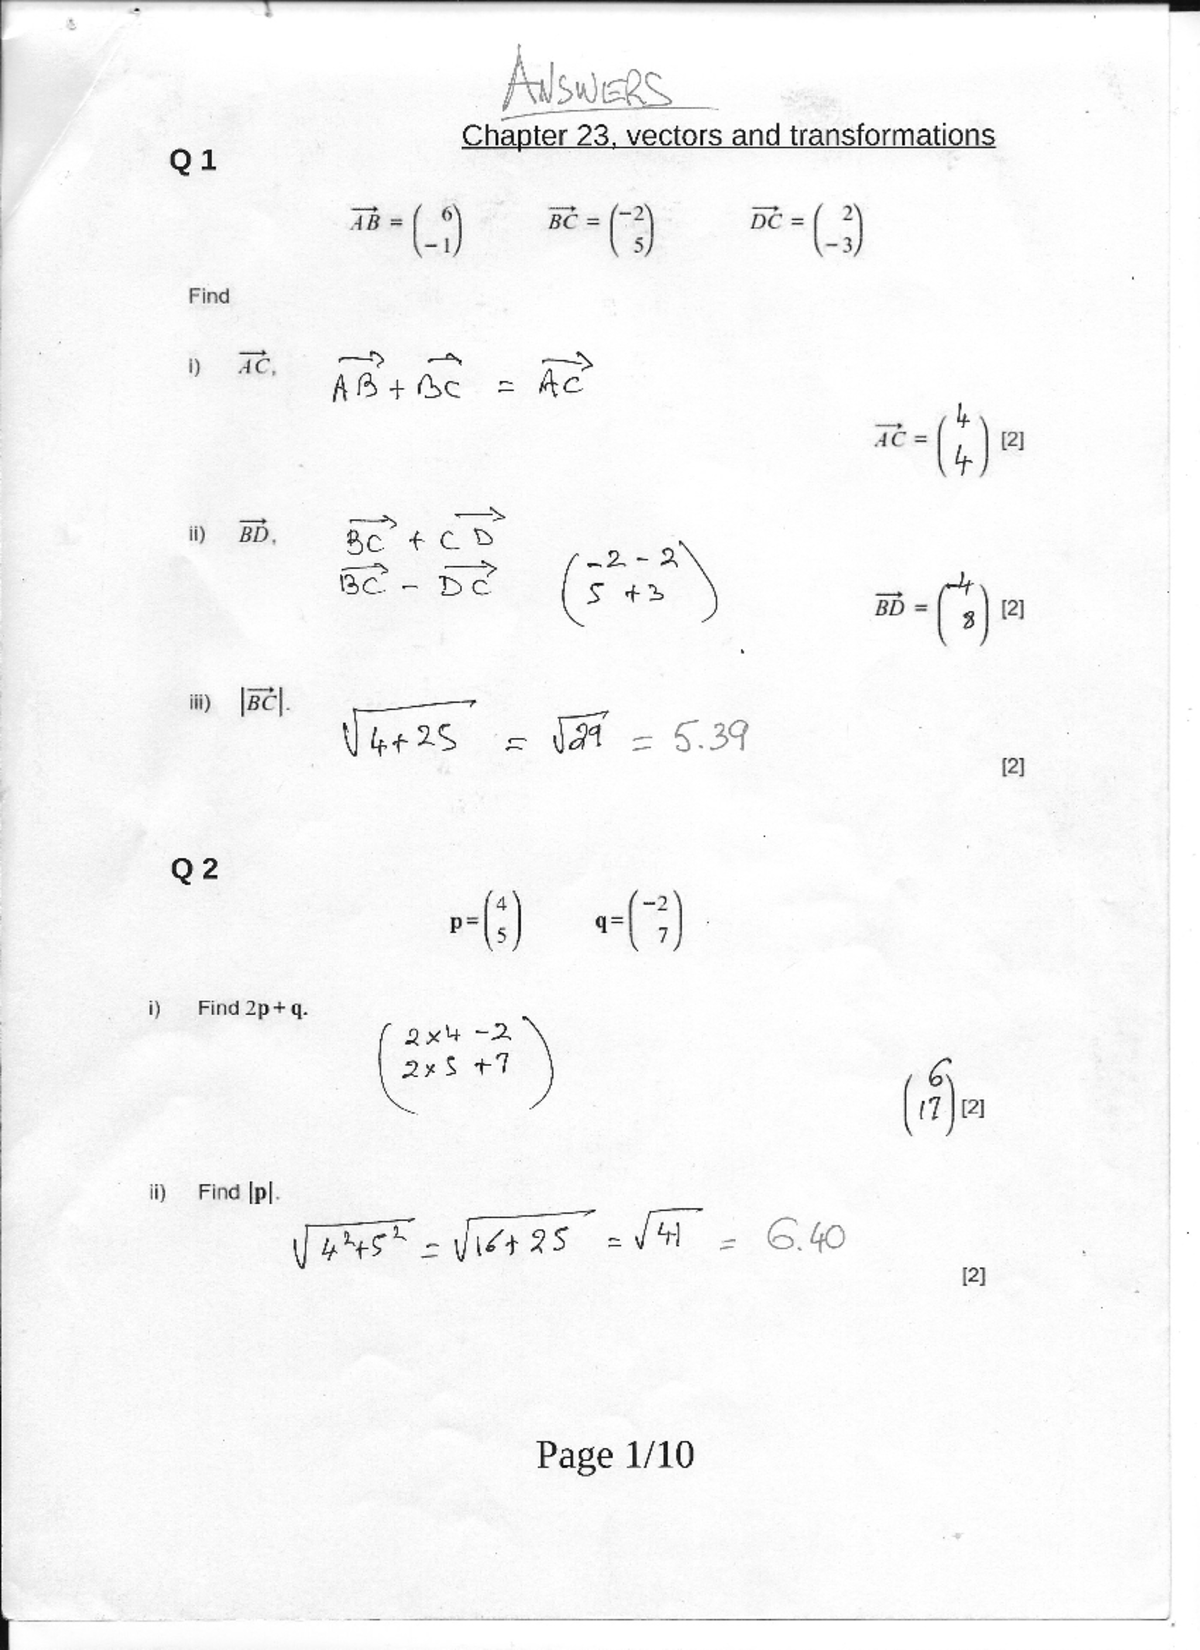 ANSWERS
Chapter 23, vectors and transformations
Q 1
AB = (6 −1) BC = (−2 5) DC = (2 −3)
Find
i) AC, AB + BC = AC
AC = (4 4) [2]
ii) BD, BC + CD
BC − DC (−2 − 2 5 + 3)
BD = (−4 8) [2]
iii) |BC|. √4+25 = √29 = 5.39
[2]
Q 2
p = (4 5) q = (−2 7)
i) Find 2p + q.
(2×4 −2 2×5 +7)
(6 17) [2]
ii) Find |p|.
√4²+5² = √16+25 = √41 = 6.40
[2]
Page 1/10